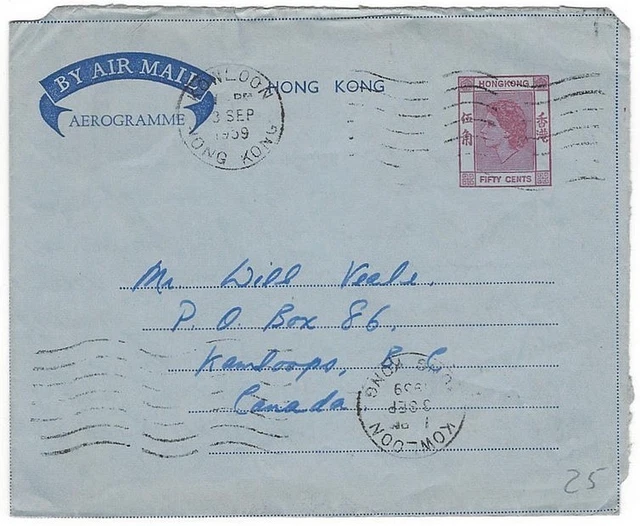 BY AIR MAIL
AEROGRAMME
KOWLOON
PM
3 SEP
1959
HONG KONG
HONG KONG
HONGKONG
伍角
香港
FIFTY CENTS
Mr. Will Veale.
P. O. Box 86.
Kamloops, B C
Canada
HONG KONG
1959
3 SEP
1 PM
KOWLOON
25